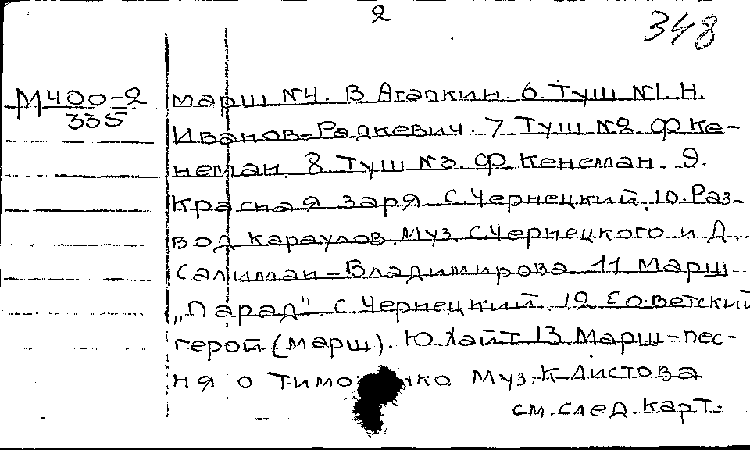 2
348
М400-2
335
марш №4. В Агапкин. 6. Туш №1. Н.
Иванов-Радкевич. 7 Туш №2. Ф Ке-
неман. 8. Туш №3. Ф. Кенеман. 9.
Красная заря С. Чернецкий. 10. Раз-
вод караулов Муз. С. Чернецкого и Д.
Салиман-Владимирова 11 Марш
„Парад" С. Чернецкий. 12 Советский
герой (марш). Ю Хайт 13 Марш-пес-
ня о Муз. К Листова
см. след. карт.